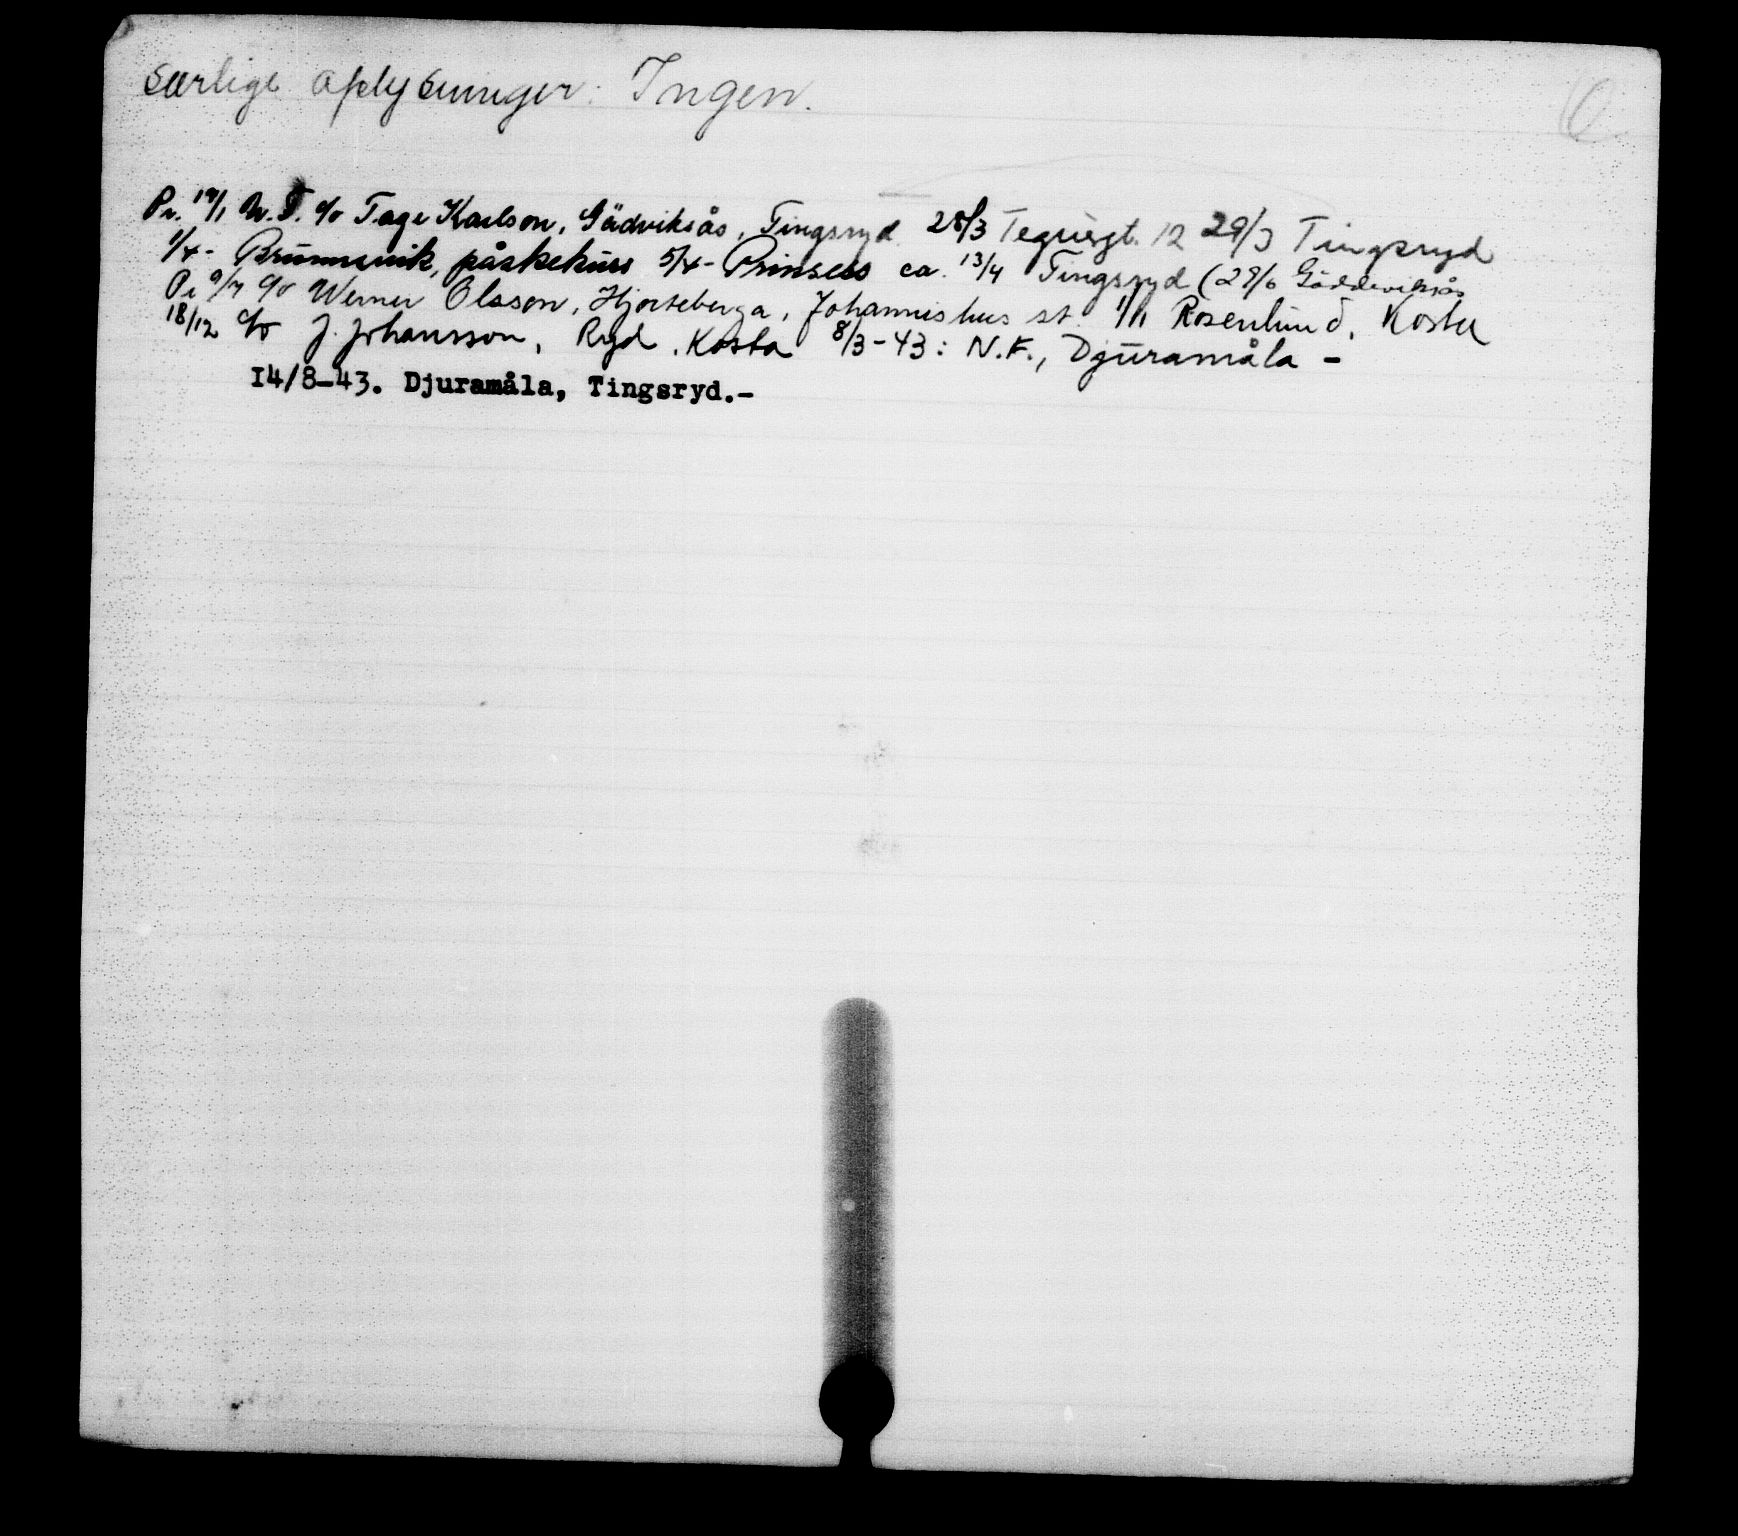 Særlige oplysninger: Ingen.
Pr. 19/1 N.F. c/o Tage Karlson, Gädviksås, Tingsryd 28/3 Tegnérgt. 12 29/3 Tingsryd
1/4 - Brunnsvik, påskekurs 5/4 - Prinsess ca. 13/4 Tingsryd (29/6 Gäddeviksås
Pr 9/7 c/o Werner Olsson, Hjorteberga, Johannishus st. 1/11 Rosenlund, Kosta
18/12 c/o J. Johansson, Ryd, Kosta 8/3-43: N.F., Djuramåla -
14/8-43. Djuramåla, Tingsryd.-